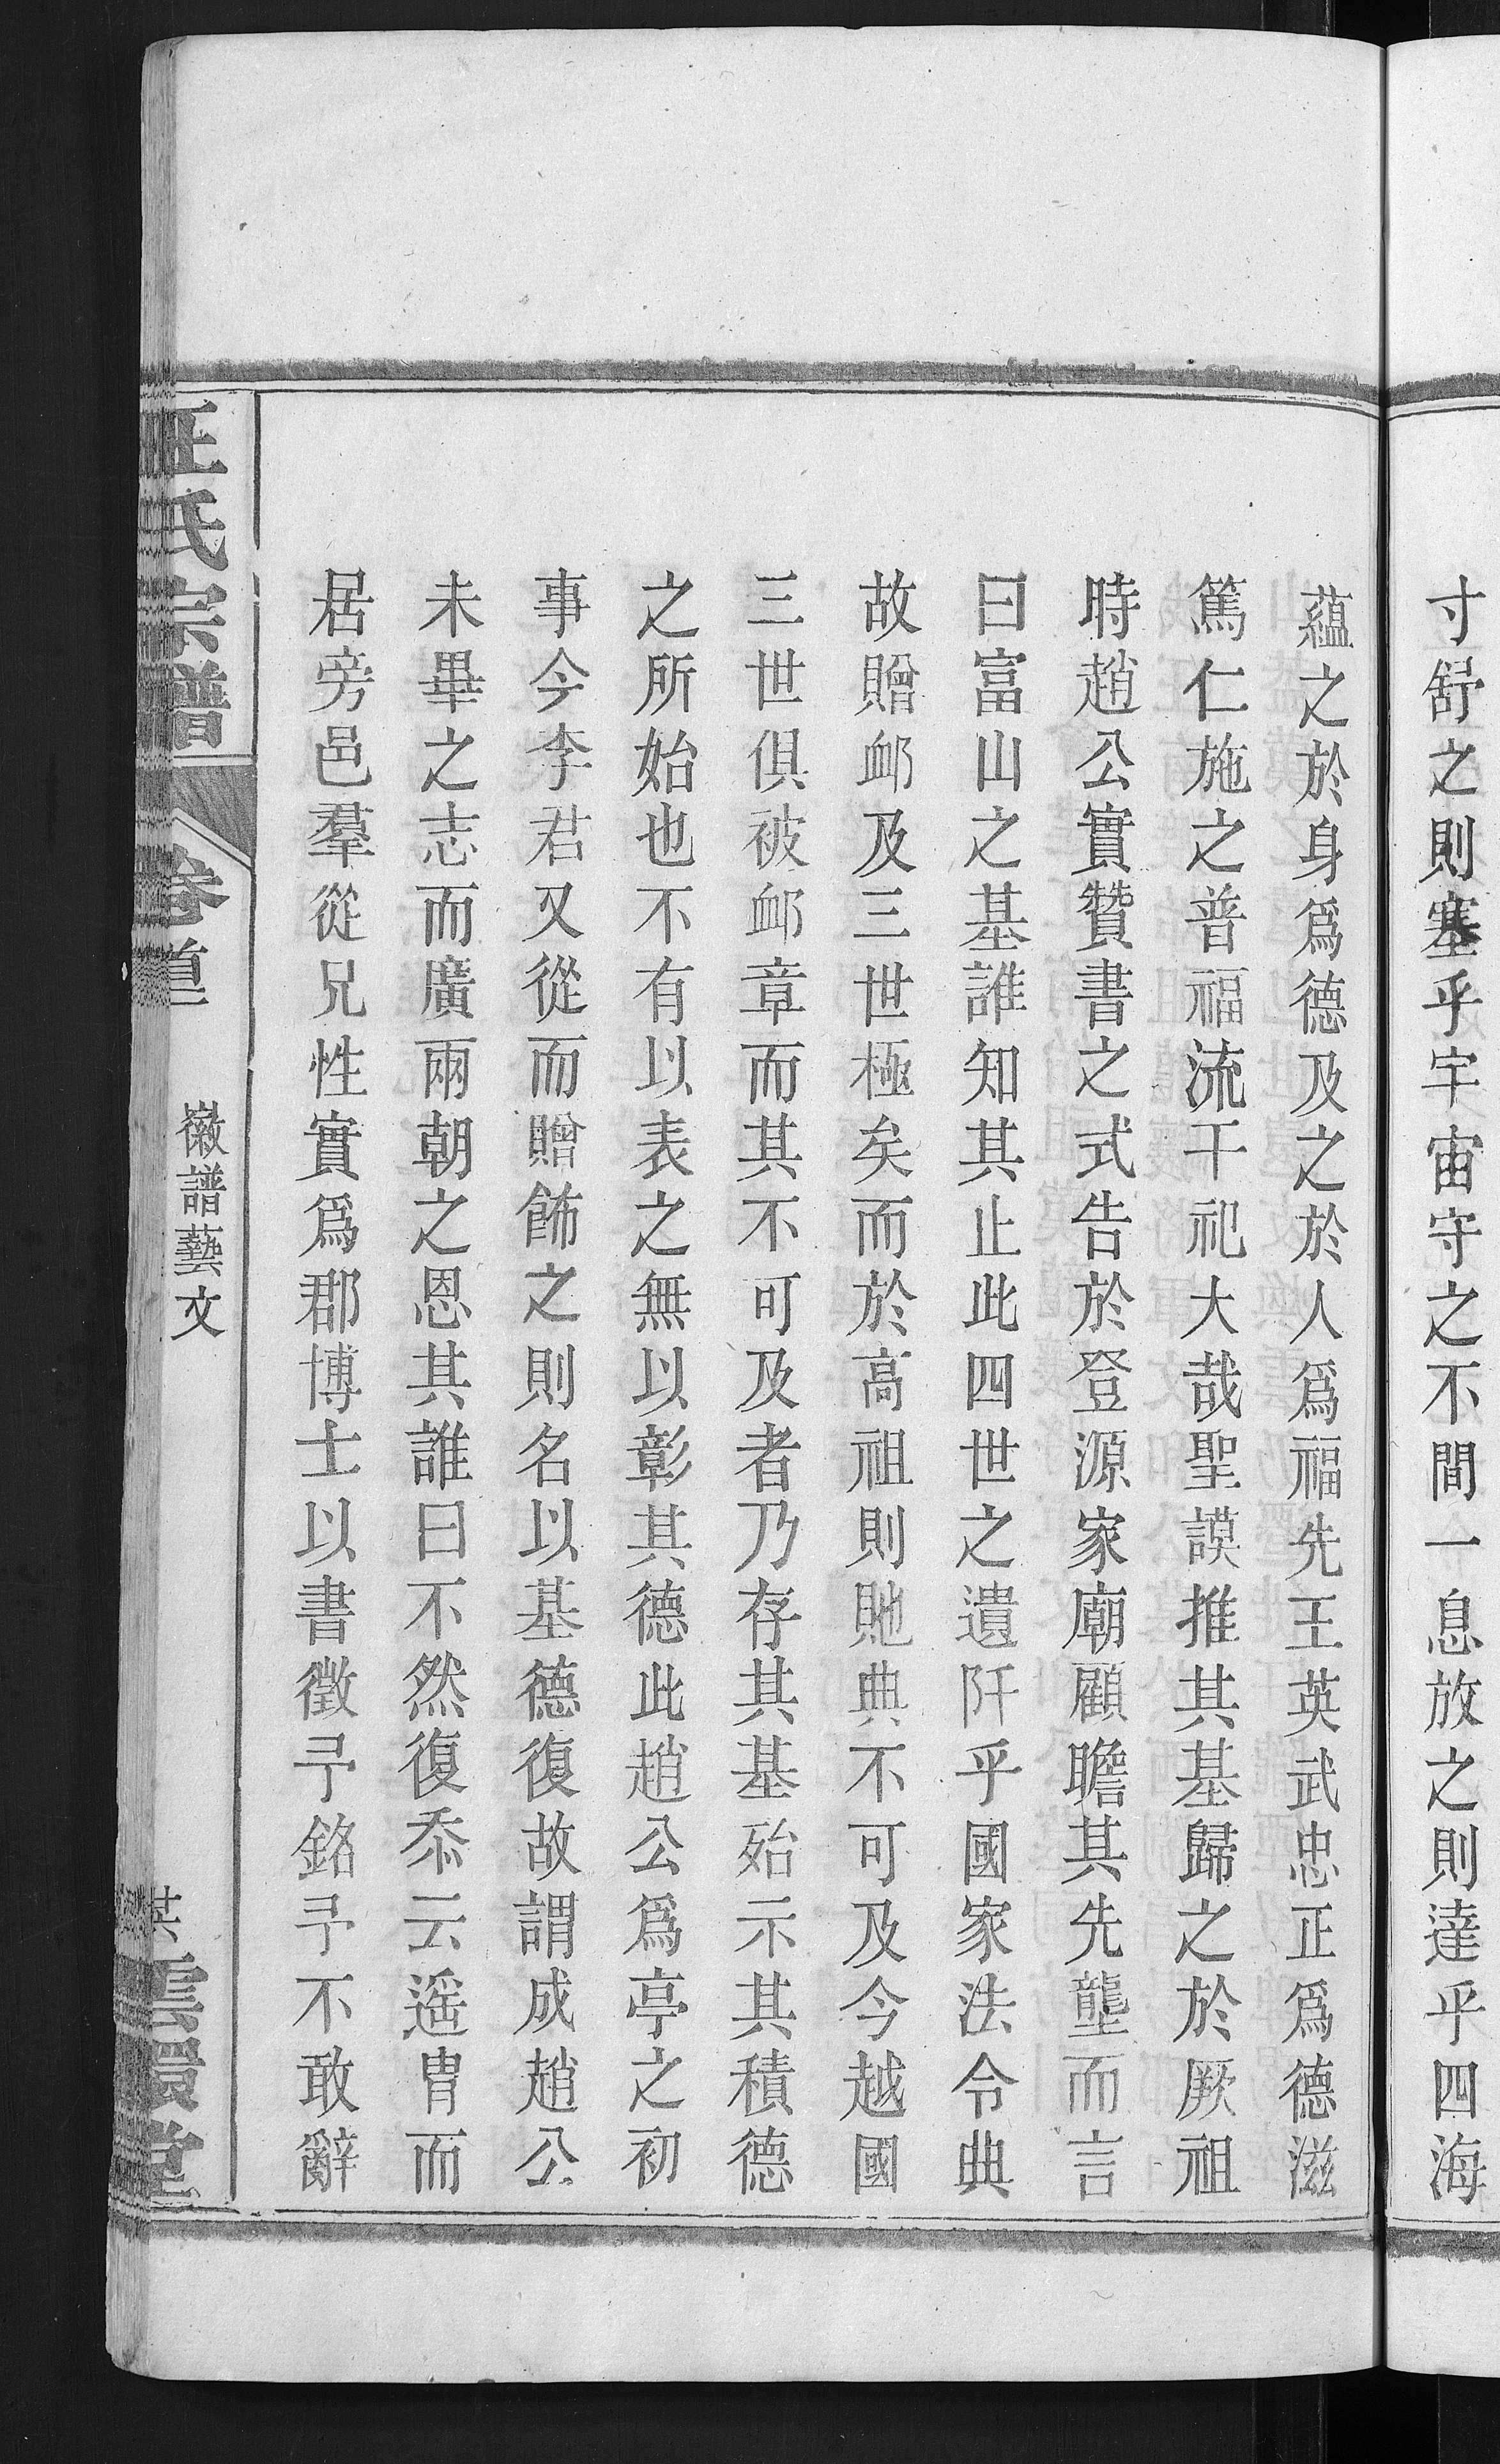 寸舒之則塞乎宇宙守之不間一息放之則達乎四海
蘊之於身爲德及之於人爲福先王英武忠正爲德滋
篤仁施之普福流干祀大哉聖謨推其基歸之於厥祖
時趙公實贊書之式告於登源家廟顧瞻其先壟而言
曰富山之基誰知其止此四世之遺阡乎國家法令典
故贈卹及三世極矣而於高祖則貤典不可及今越國
三世俱被卹章而其不可及者乃存其基殆示其積德
之所始也不有以表之無以彰其德此趙公爲亭之初
事今李君又從而贈飾之則名以基德復故謂成趙公
未畢之志而廣兩朝之恩其誰曰不然復忝云遥冑而
居旁邑羣從兄性實爲郡博士以書徵予銘予不敢辭
汪氏宗譜
卷首
徽譜藝文
英
雲環堂